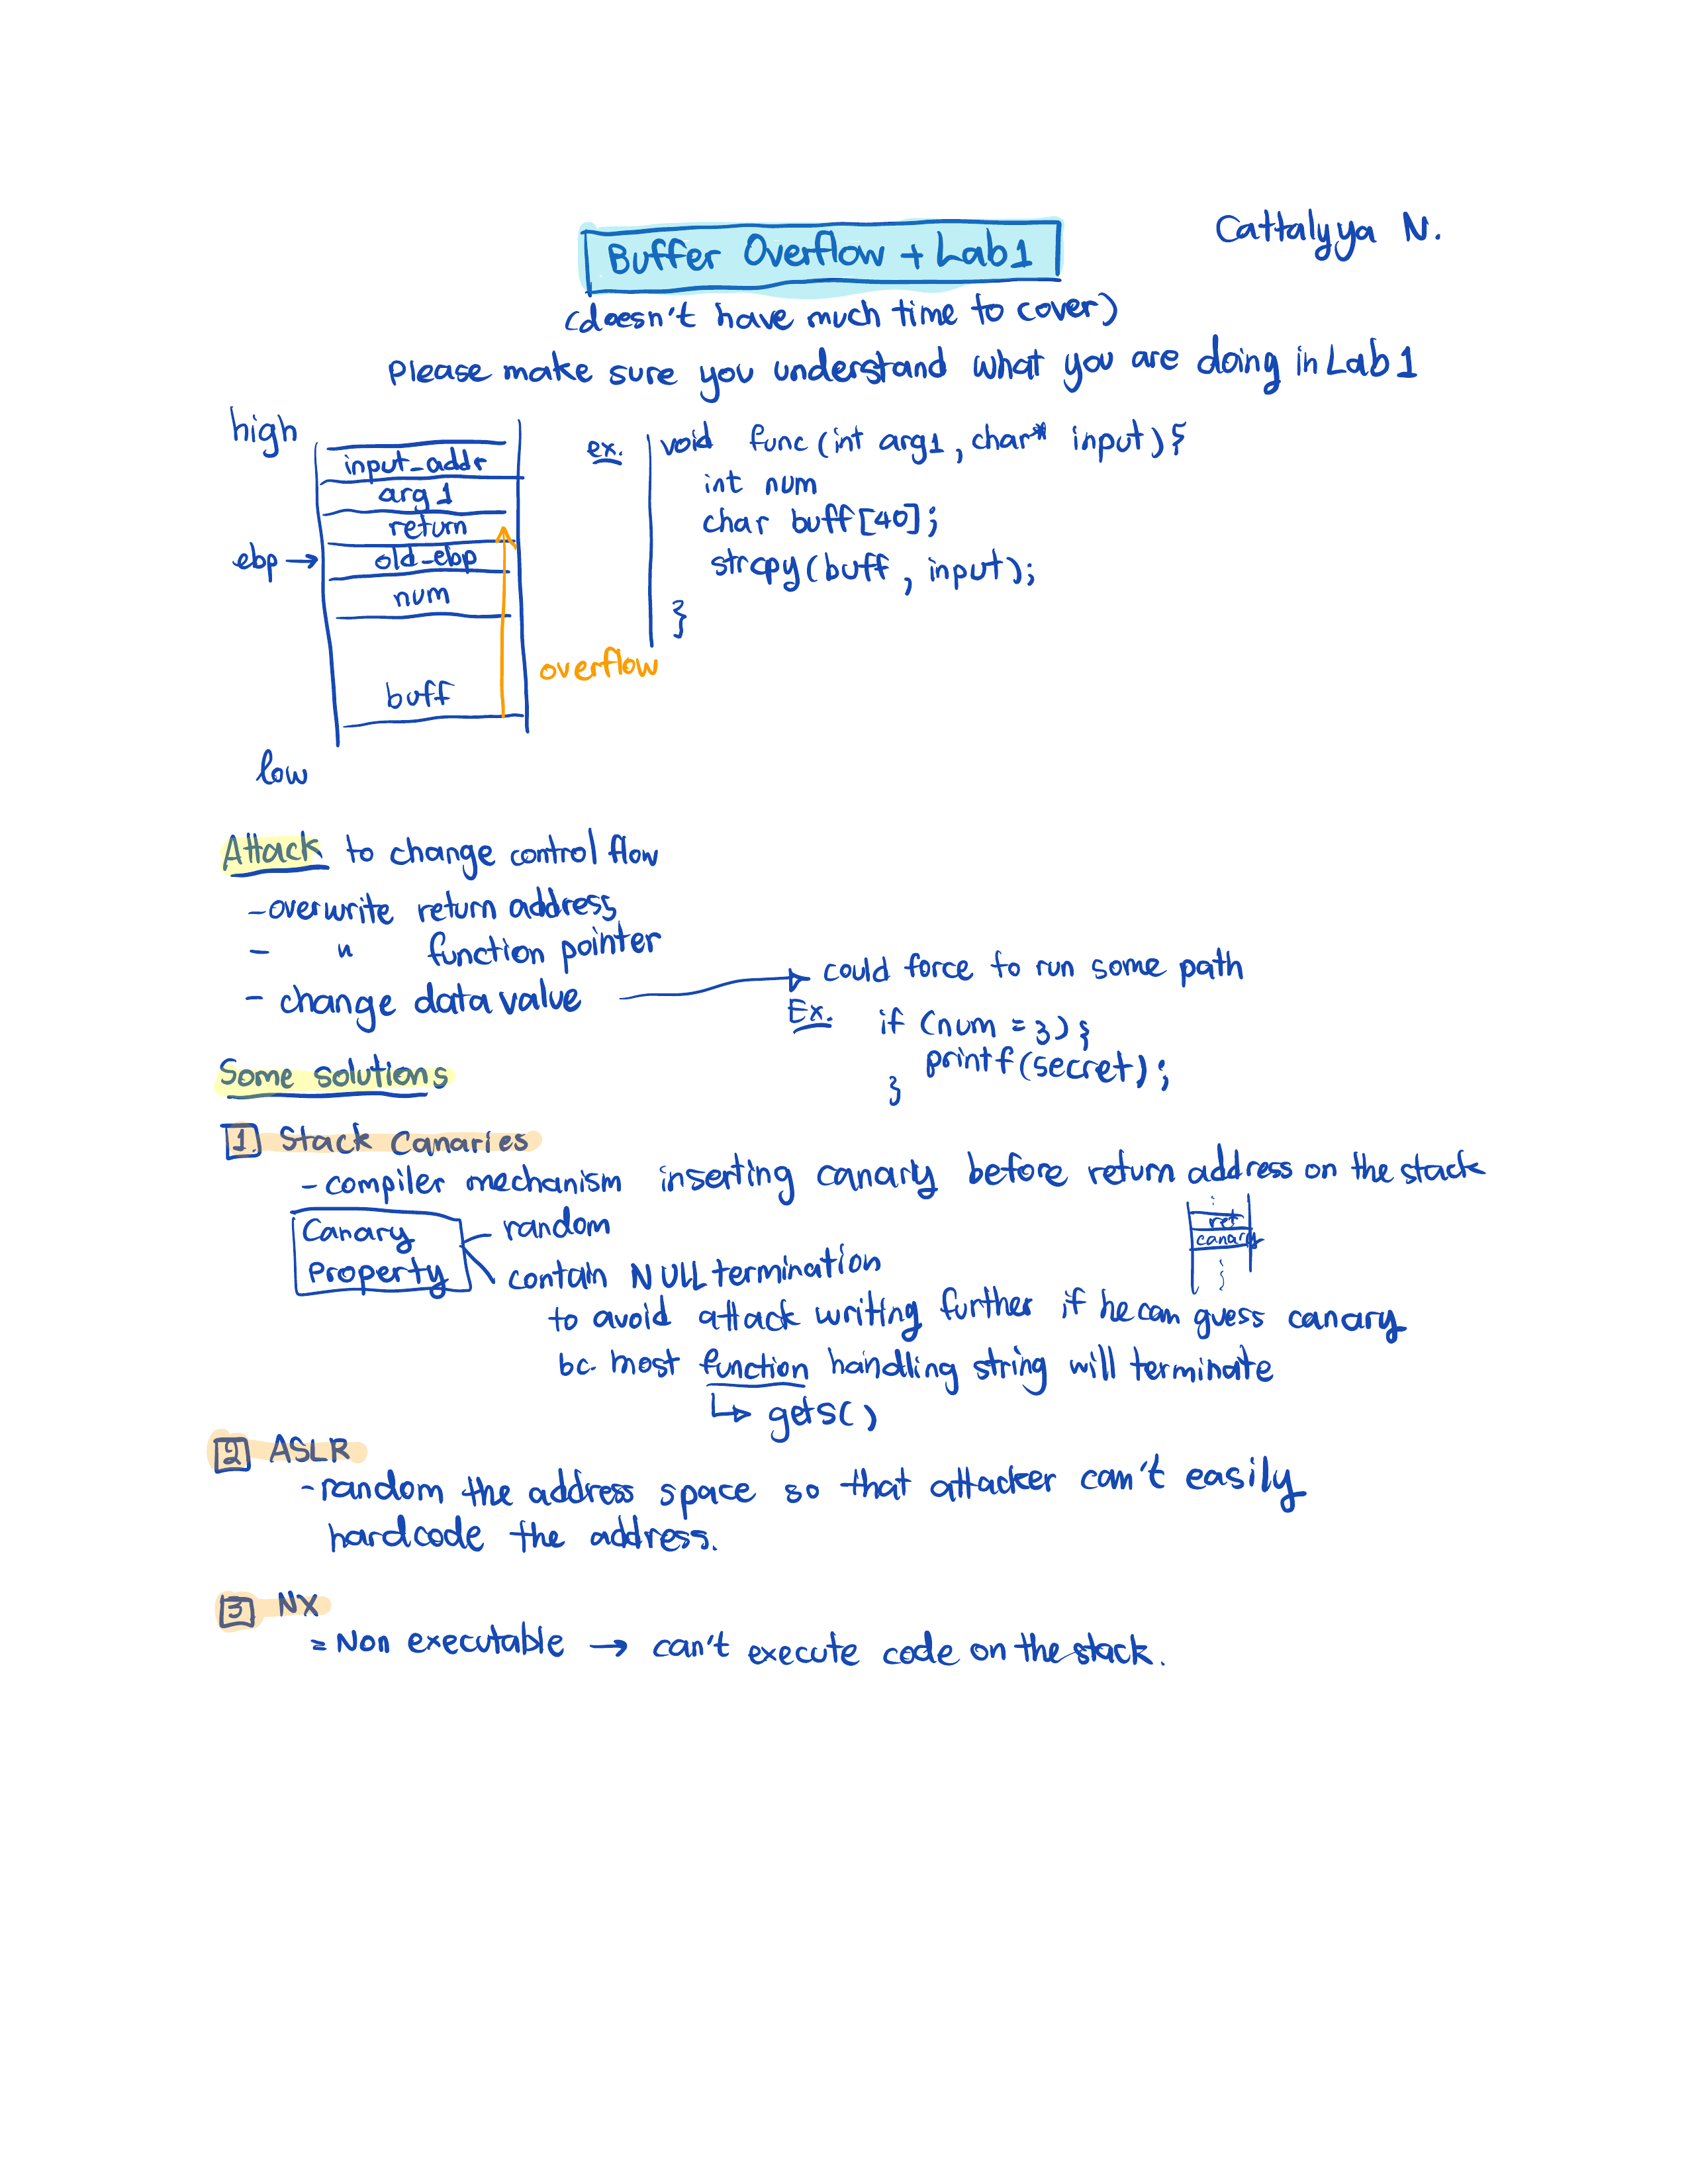 Buffer Overflow + Lab1
Cattalyya N.
(doesn't have much time to cover)
Please make sure you understand what you are doing in Lab 1
high
input_addr
arg 1
return
ebp → old_ebp
num
buff
low
overflow
ex. void func (int arg1, char* input) {
int num
char buff[40];
strcpy(buff, input);
}
Attack to change control flow
- overwrite return address
- " function pointer
- change data value → could force to run some path
Ex. if (num = 3) {
printf(secret);
}
Some solutions
1. Stack Canaries
- compiler mechanism inserting canary before return address on the stack
ret
canary
Canary
Property
random
contain NULL termination
to avoid attack writing further if he can guess canary
bc. most function handling string will terminate
↳ gets()
2 ASLR
- random the address space so that attacker can't easily
hardcode the address.
3 NX
= Non executable → can't execute code on the stack.